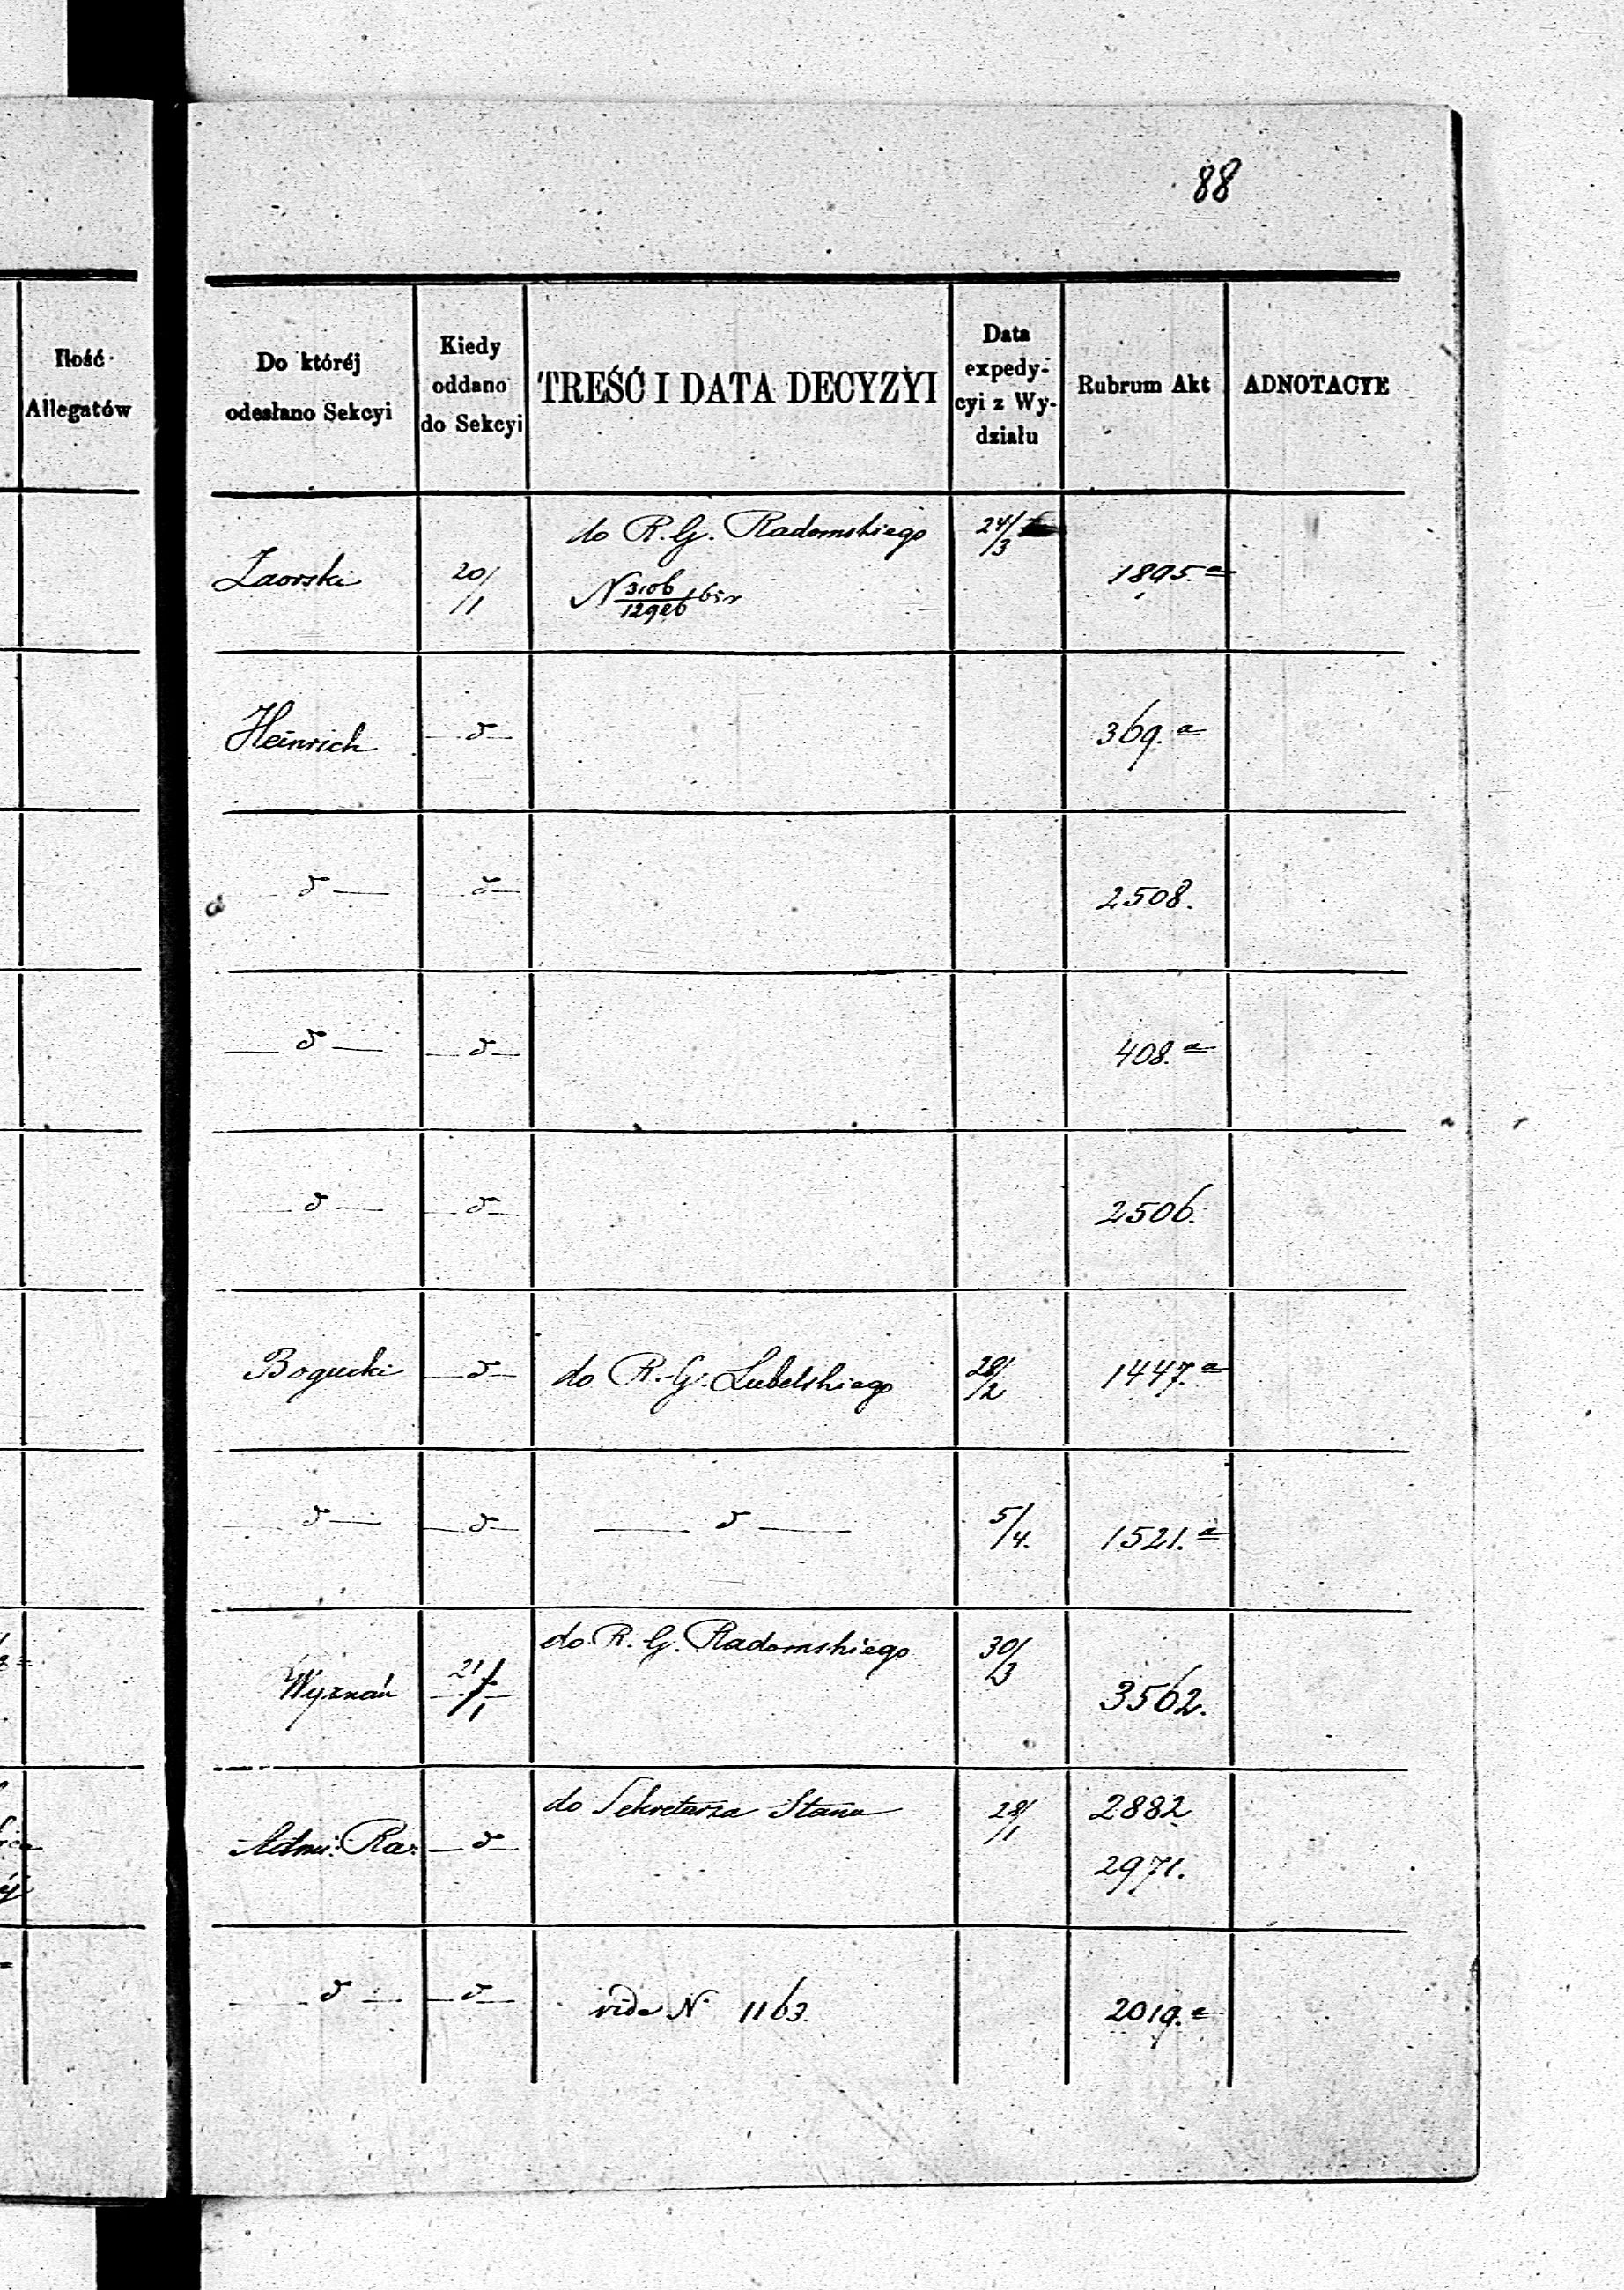 88
Ilość
Allegatów
Do któréj
odesłano Sekcyi
Kiedy
oddano
do Sekcyi
TREŚĆ I DATA DECYZYI
Data
expedy-
cyi z Wy-
działu
Rubrum Akt
ADNOTACYE
Zaorski 20/11 do R. G. Radomskiego 24/3 1895.a
N 3106/12926
Heinrich — d — 369.a
— d — — d — 2508.
— d — — d — 408.a
— d — — d — 2506.
Bogucki — d — do R. G. Lubelskiego 28/2 1447.a
— d — — d — — d — 5/4. 1521.a
Wyznań 21/1 do R. G. Radomskiego 30/3 3562.
Admi: Ra: — d — do Sekretarza Stanu 28/1 2882
2971.
— d — — d — vide N 1163. 2019.a